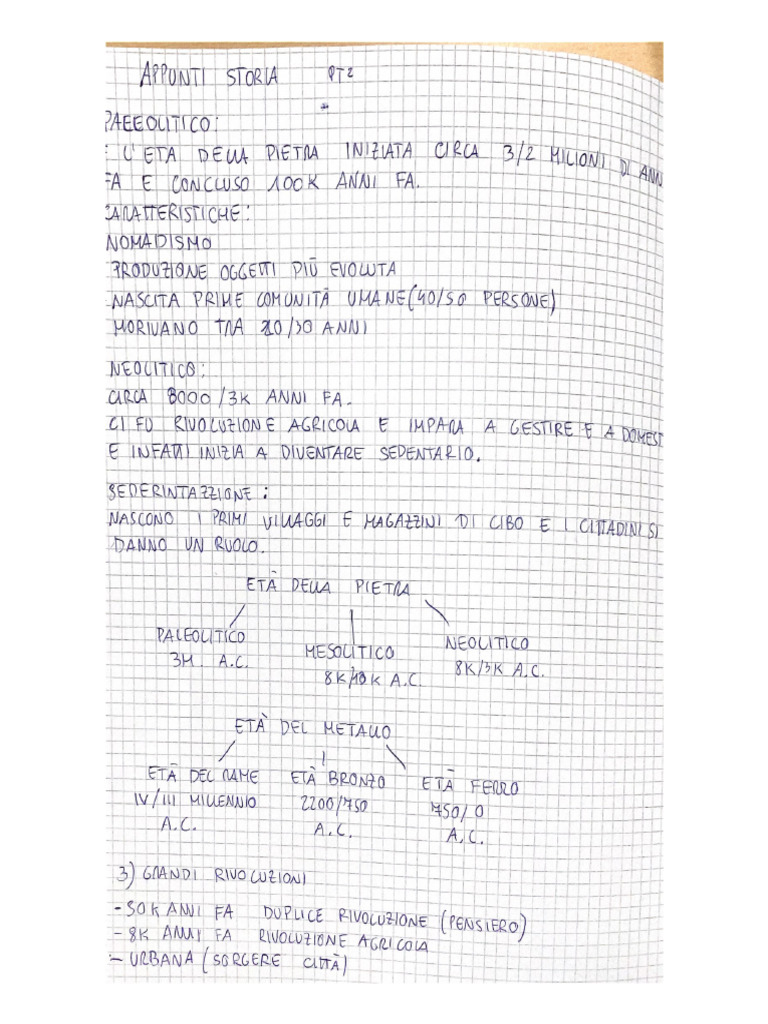 APPUNTI STORIA PT2
PALEOLITICO:
E L'ETÀ DELLA PIETRA INIZIATA CIRCA 3/2 MILIONI DI ANN
FA E CONCLUSO 100K ANNI FA.
CARATTERISTICHE:
NOMADISMO
PRODUZIONE OGGETTI PIÙ EVOLUTA
NASCITA PRIME COMUNITÀ UMANE (40/50 PERSONE)
MORIVANO TRA 20/30 ANNI
NEOLITICO:
CIRCA 8000/3K ANNI FA.
CI FU RIVOLUZIONE AGRICOLA E IMPARA A GESTIRE E A DOMEST
E INFATTI INIZIA A DIVENTARE SEDENTARIO.
SEDERINTAZZIONE:
NASCONO I PRIMI VILLAGGI E MAGAZZINI DI CIBO E I CITTADINI SI
DANNO UN RUOLO.
ETÀ DELLA PIETRA
PALEOLITICO MESOLITICO NEOLITICO
3M. A.C. 8K/10K A.C. 8K/3K A.C.
ETÀ DEL METALLO
ETÀ DEL RAME ETÀ BRONZO ETÀ FERRO
IV/III MILLENNIO 2200/750 750/0
A.C. A.C. A.C.
3) GRANDI RIVOLUZIONI
- 50K ANNI FA DUPLICE RIVOLUZIONE (PENSIERO)
- 8K ANNI FA RIVOLUZIONE AGRICOLA
- URBANA (SORGERE CITTÀ)